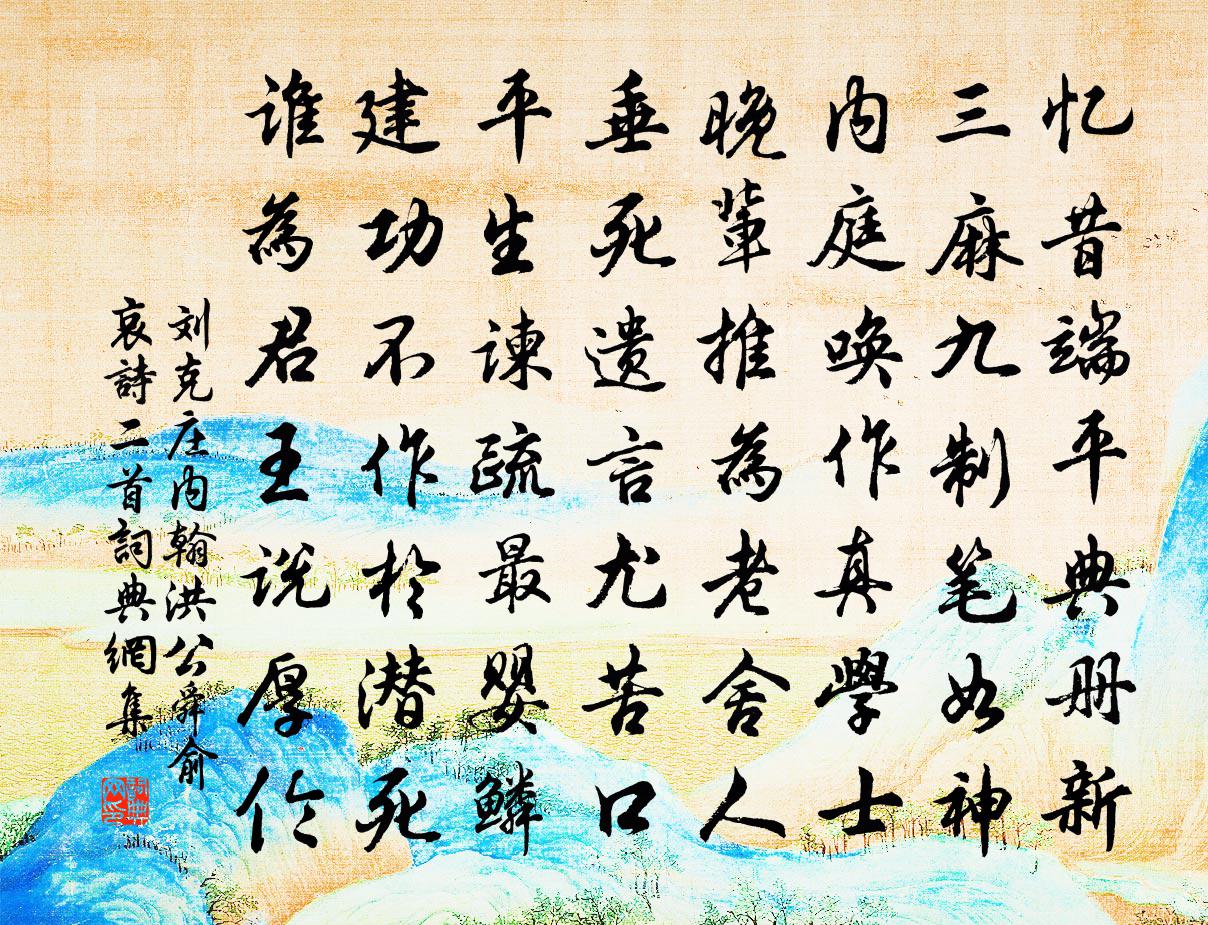 忆昔端平典册新
三麻九制笔如神
内庭唤作真學士
晚輩推為老舍人
垂死遗言尤苦口
平生谏疏最婴鳞
建功不作於潜死
谁為君王说厚伦
刘克庄内翰洪公舜俞
哀詩二首詞典網集